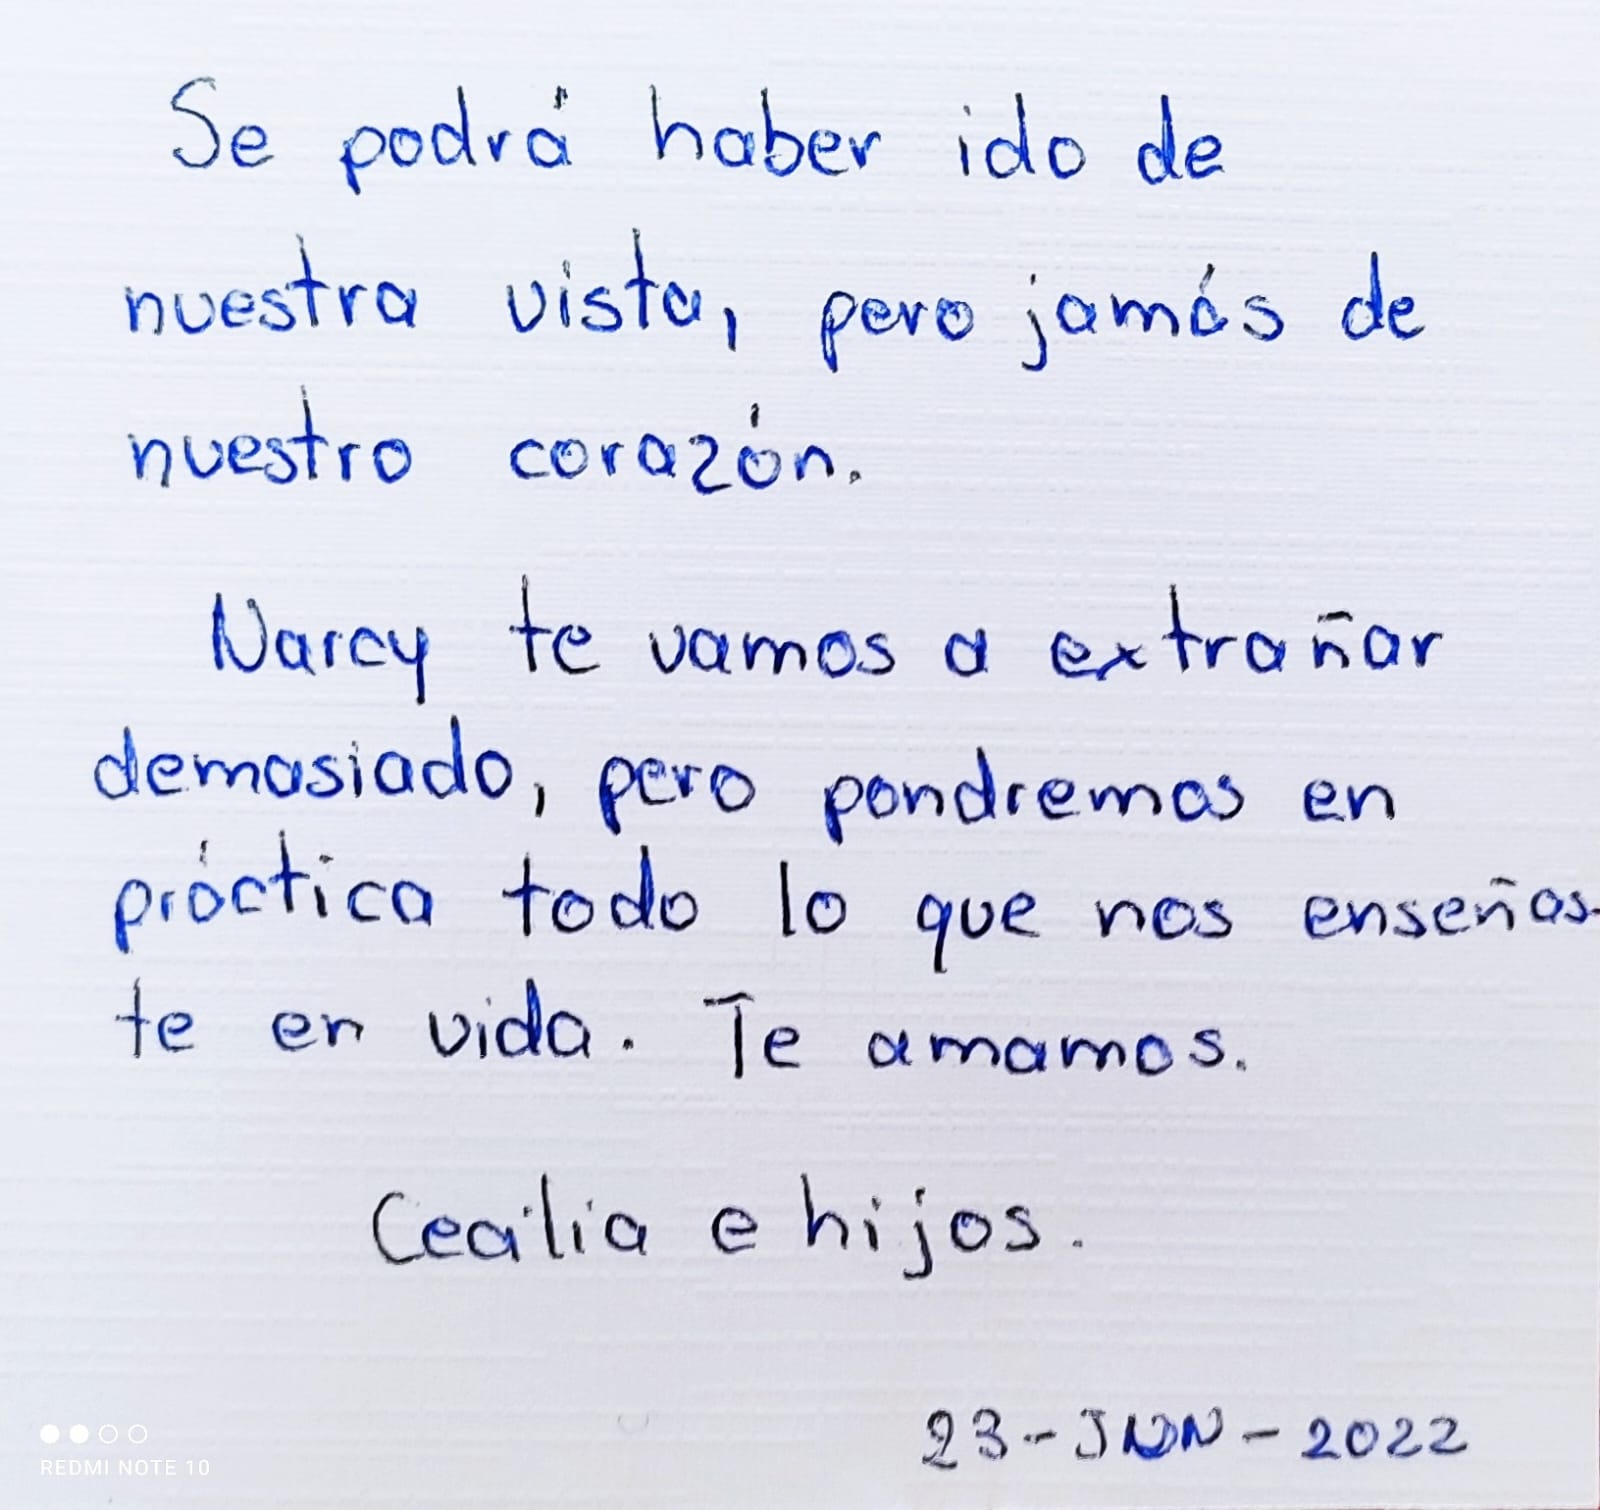 Se podrá haber ido de
nuestra vista, pero jamás de
nuestro corazón.
Narcy te vamos a extrañar
demasiado, pero pondremos en
práctica todo lo que nos enseñas-
te en vida. Te amamos.
Cecilia e hijos.
23-JUN-2022
REDMI NOTE 10